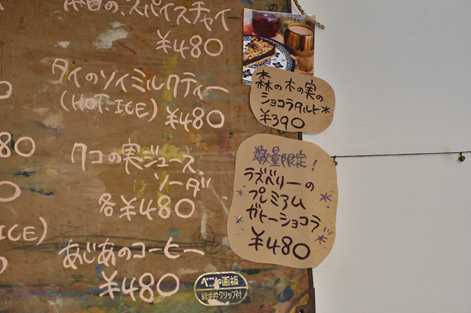 本日のスパイスチャイ
¥480
タイのソイミルクティー
(HOT・ICE) ¥480
タコの実ジュース、
ソーダ
各¥480
ICE)
あじあのコーヒー
¥480
森の木の実の
ショコラタルト
¥390
数量限定!
ラズベリーの
プレミアム
ガトーショコラ
¥480
ベニヤ画板